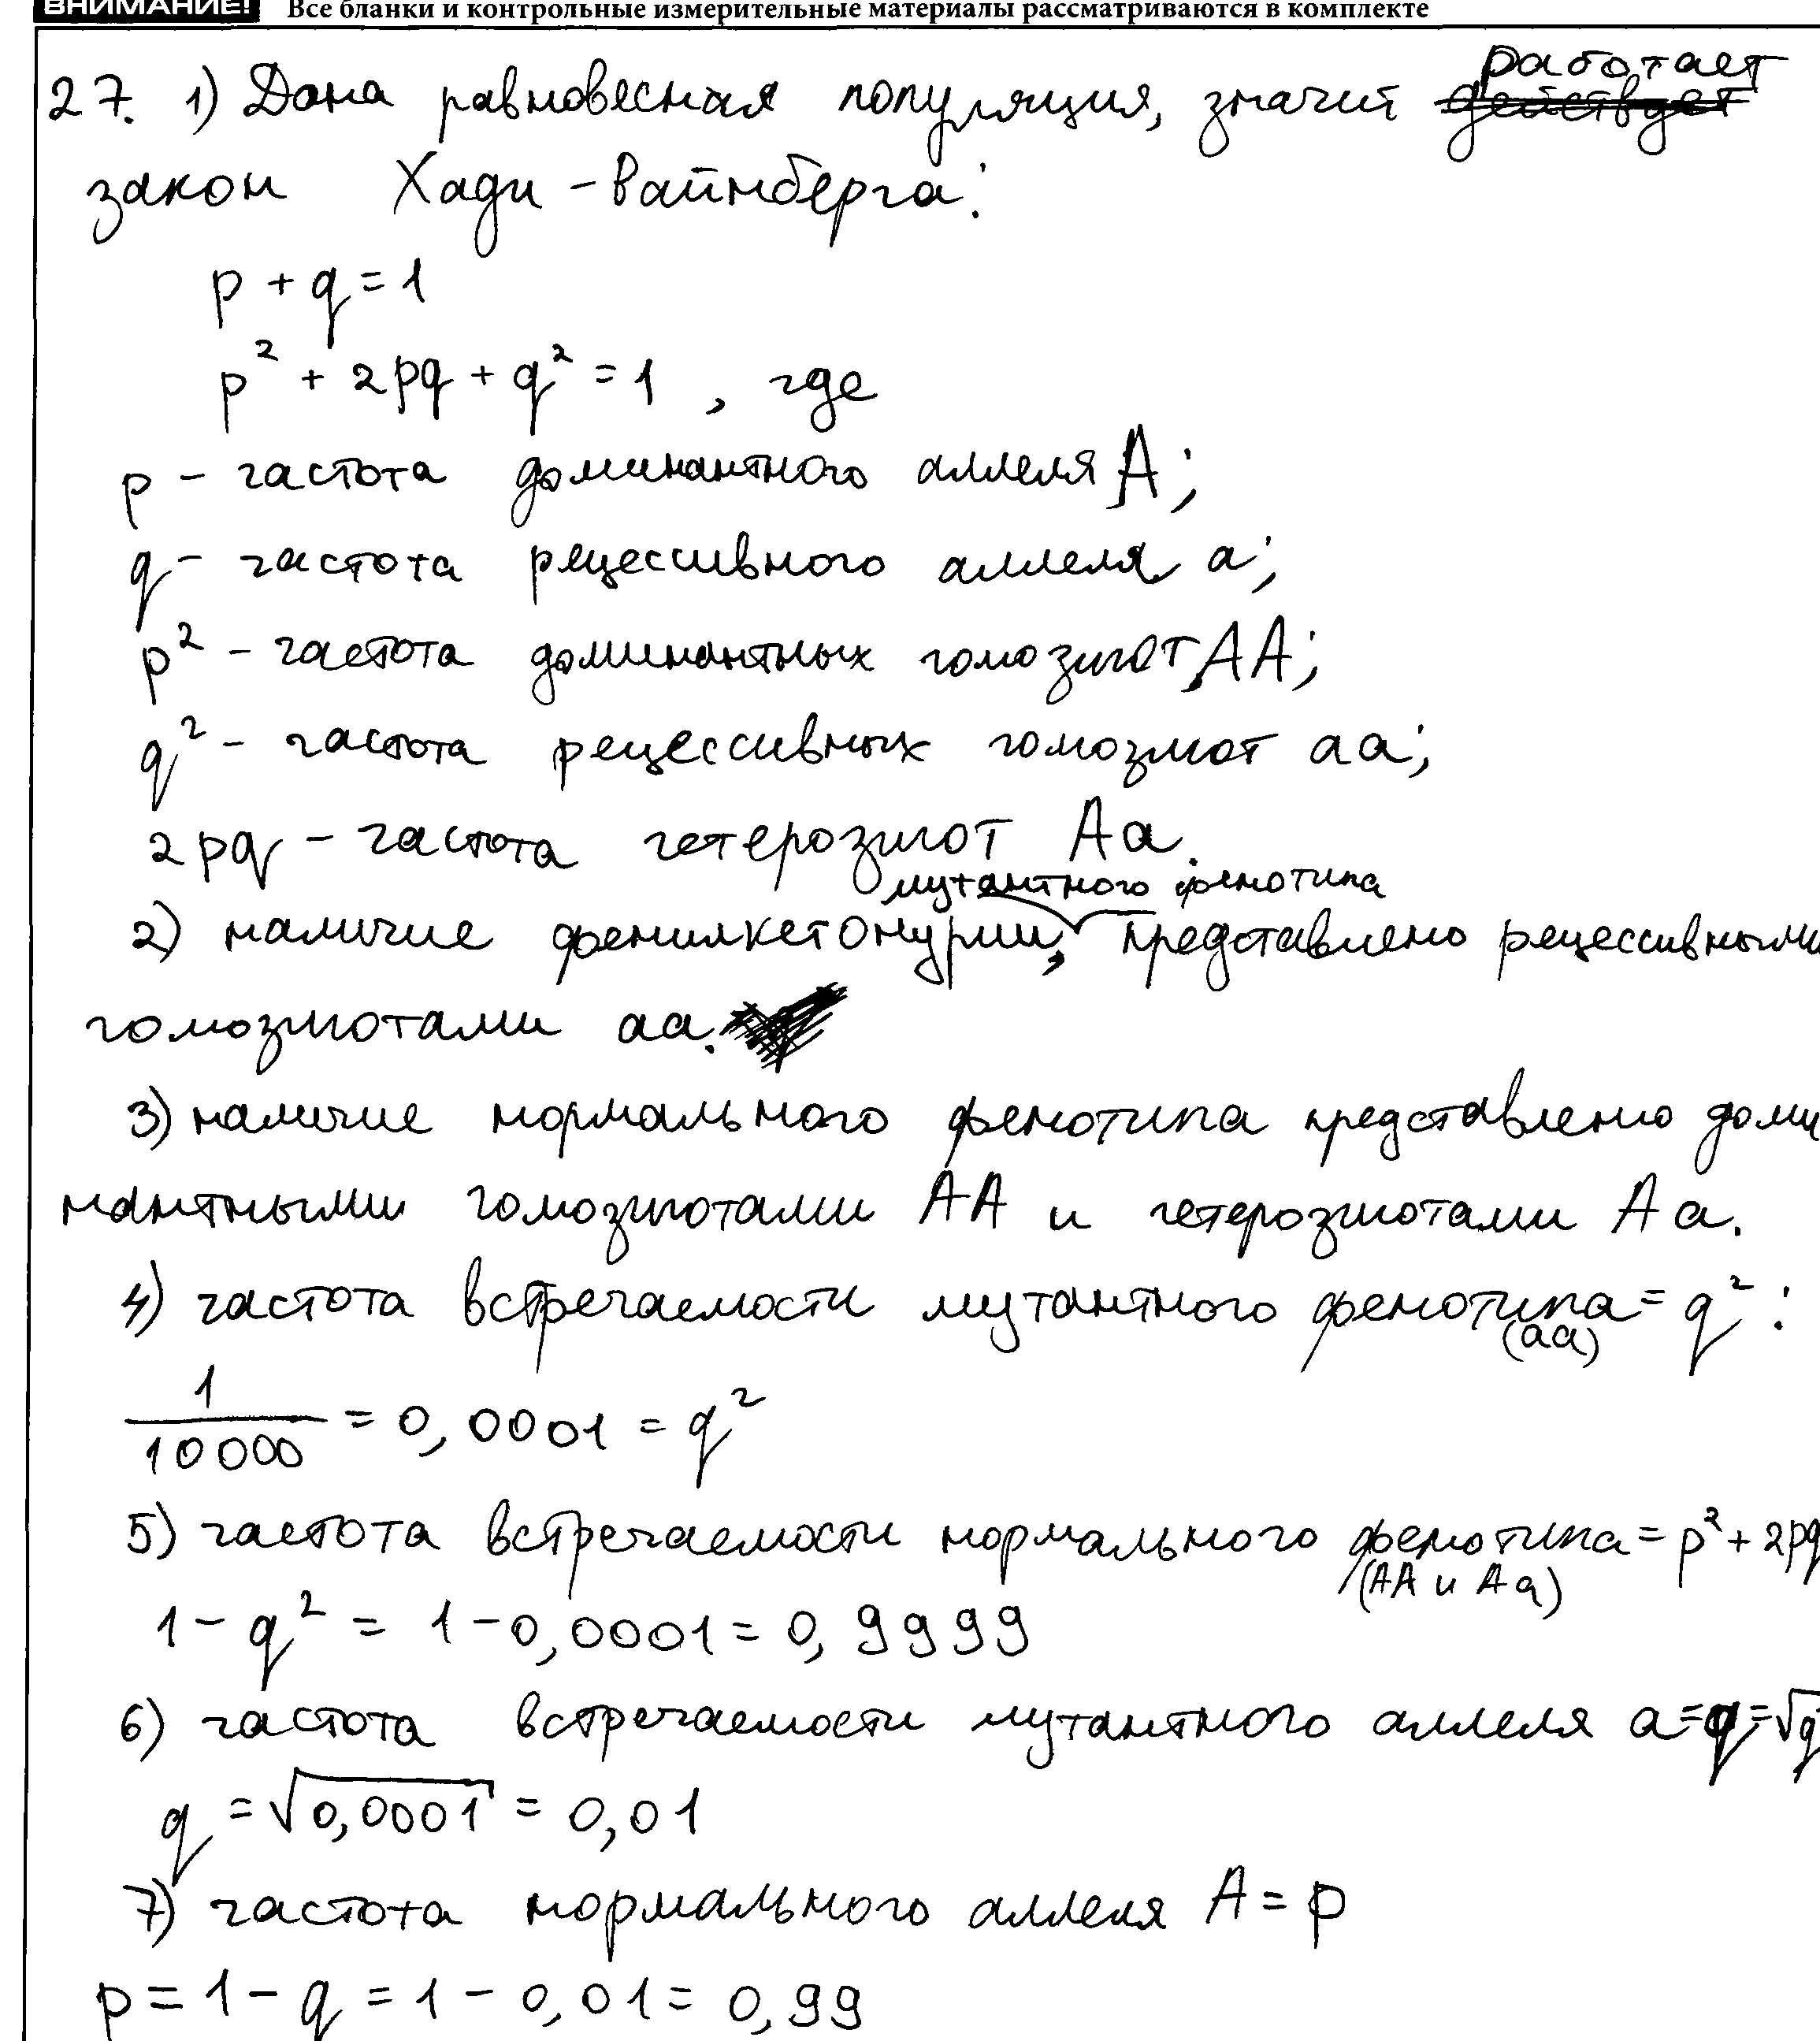 ВНИМАНИЕ! Все бланки и контрольные измерительные материалы рассматриваются в комплекте
работает
27. 1) Дана равновесная популяция, значит действует
закон Хади - Вайнберга:
p + q = 1
p² + 2pq + q² = 1, где
p - частота доминантного аллеля A;
q - частота рецессивного аллеля a;
p² - частота доминантных гомозигот AA;
q² - частота рецессивных гомозигот aa;
2pq - частота гетерозигот Aa.
мутантного фенотипа
2) наличие фенилкетонурии, представлено рецессивными
гомозиготами aa.
3) наличие нормального фенотипа представлено доми
нантными гомозиготами AA и гетерозиготами Aa.
4) частота встречаемости мутантного фенотипа = q²:
(aa)
1/10000 = 0,0001 = q²
5) частота встречаемости нормального фенотипа = p² + 2pq
(AA и Aa)
1 - q² = 1 - 0,0001 = 0,9999
6) частота встречаемости мутантного аллеля a = q = √q
q = √0,0001 = 0,01
7) частота нормального аллеля A = p
p = 1 - q = 1 - 0,01 = 0,99